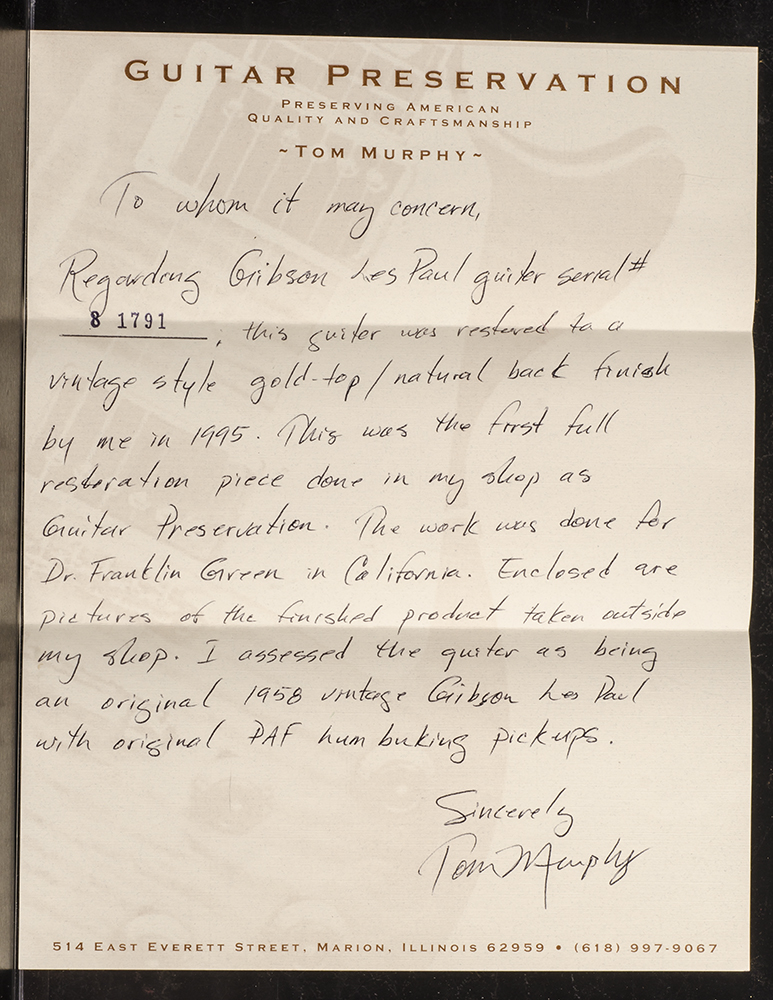 GUITAR PRESERVATION
PRESERVING AMERICAN
QUALITY AND CRAFTSMANSHIP
~TOM MURPHY~
To whom it may concern,
Regarding Gibson Les Paul guitar serial #
8 1791, this guitar was restored to a
vintage style gold-top/natural back finish
by me in 1995. This was the first full
restoration piece done in my shop as
Guitar Preservation. The work was done for
Dr. Franklin Green in California. Enclosed are
pictures of the finished product taken outside
my shop. I assessed the guitar as being
an original 1958 vintage Gibson Les Paul
with original PAF humbuking pickups.
Sincerely
Tom Murphy
514 EAST EVERETT STREET, MARION, ILLINOIS 62959 • (618) 997-9067